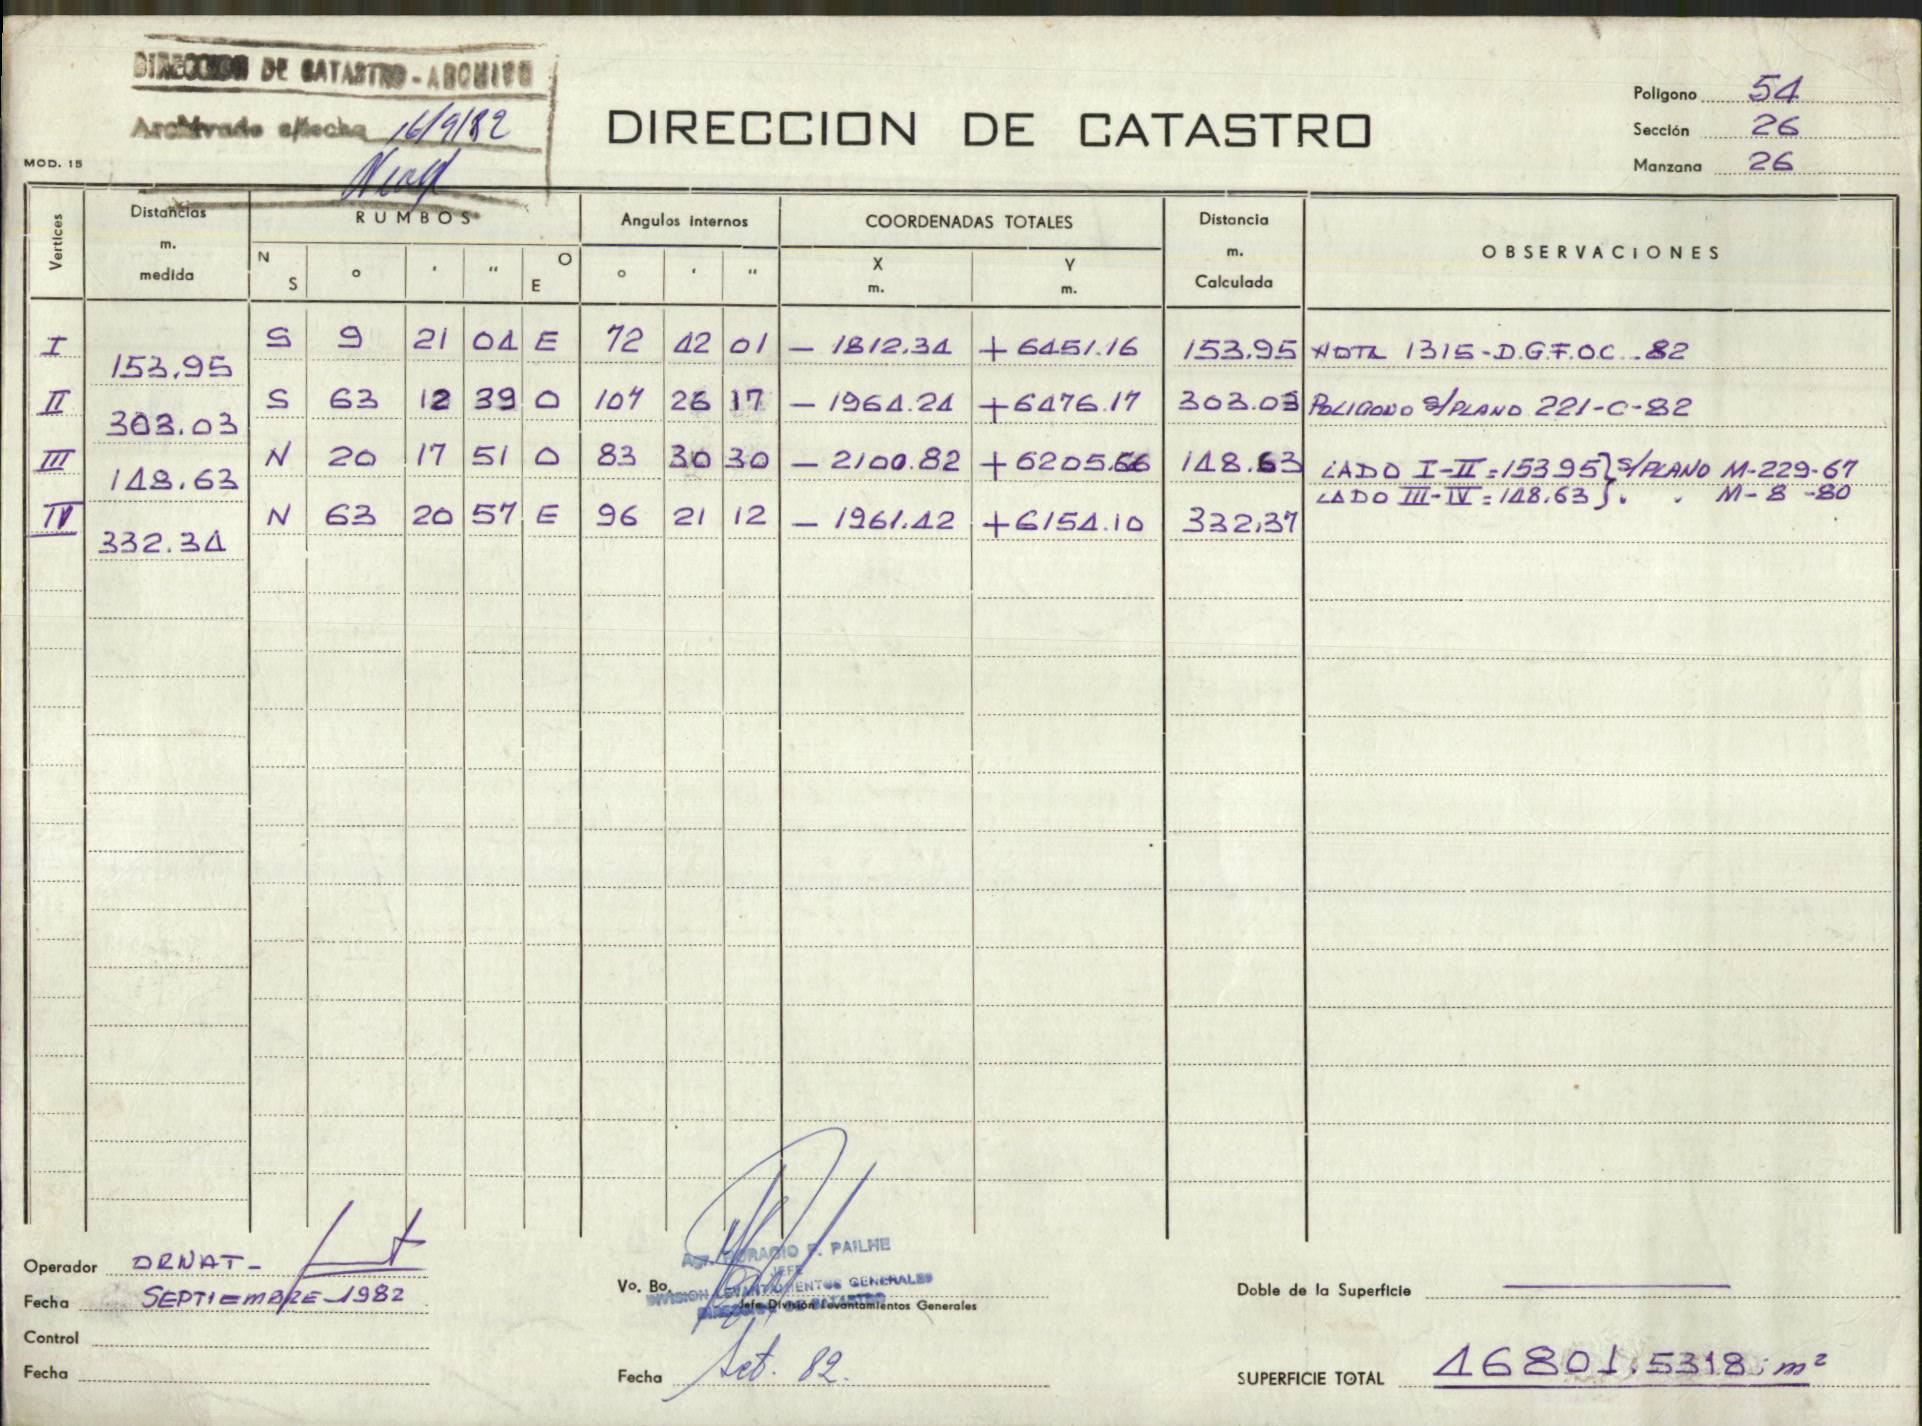 DIRECCION DE CATASTRO - ARCHIVO
Archivado s/fecha 16/9/82
MOD. 15
DIRECCION DE CATASTRO
Polígono 54
Sección 26
Manzana 26
Vertices Distancias m. medida RUMBOS Angulos internos COORDENADAS TOTALES Distancia m. Calculada OBSERVACIONES
N S ° ' " O E ° ' " X m. Y m.
I S 9 21 04 E 72 42 01 - 1812.34 + 6451.16 153.95 NOTA 1315-D.G.F.O.C..82
153.95
II S 63 12 39 O 107 26 17 - 1964.24 + 6476.17 303.03 POLIGONO S/PLANO 221-C-82
303.03
III N 20 17 51 O 83 30 30 - 2100.82 + 6205.66 148.63 LADO I-II = 153.95 } S/PLANO M-229-67
148.63 LADO III-IV = 148.63 } " " M-8-80
IV N 63 20 57 E 96 21 12 - 1961.42 + 6154.10 332.37
332.34
Operador ORNAT-
Fecha SEPTIEMBRE-1982
Control
Fecha
Agr. HORACIO P. PAILHE
JEFE
Vo. Bo.
DIVISION LEVANTAMIENTOS GENERALES
DIRECCION DE CATASTRO
Jefe División Levantamientos Generales
Fecha Set. 82.
Doble de la Superficie
SUPERFICIE TOTAL 46801.5318 m²